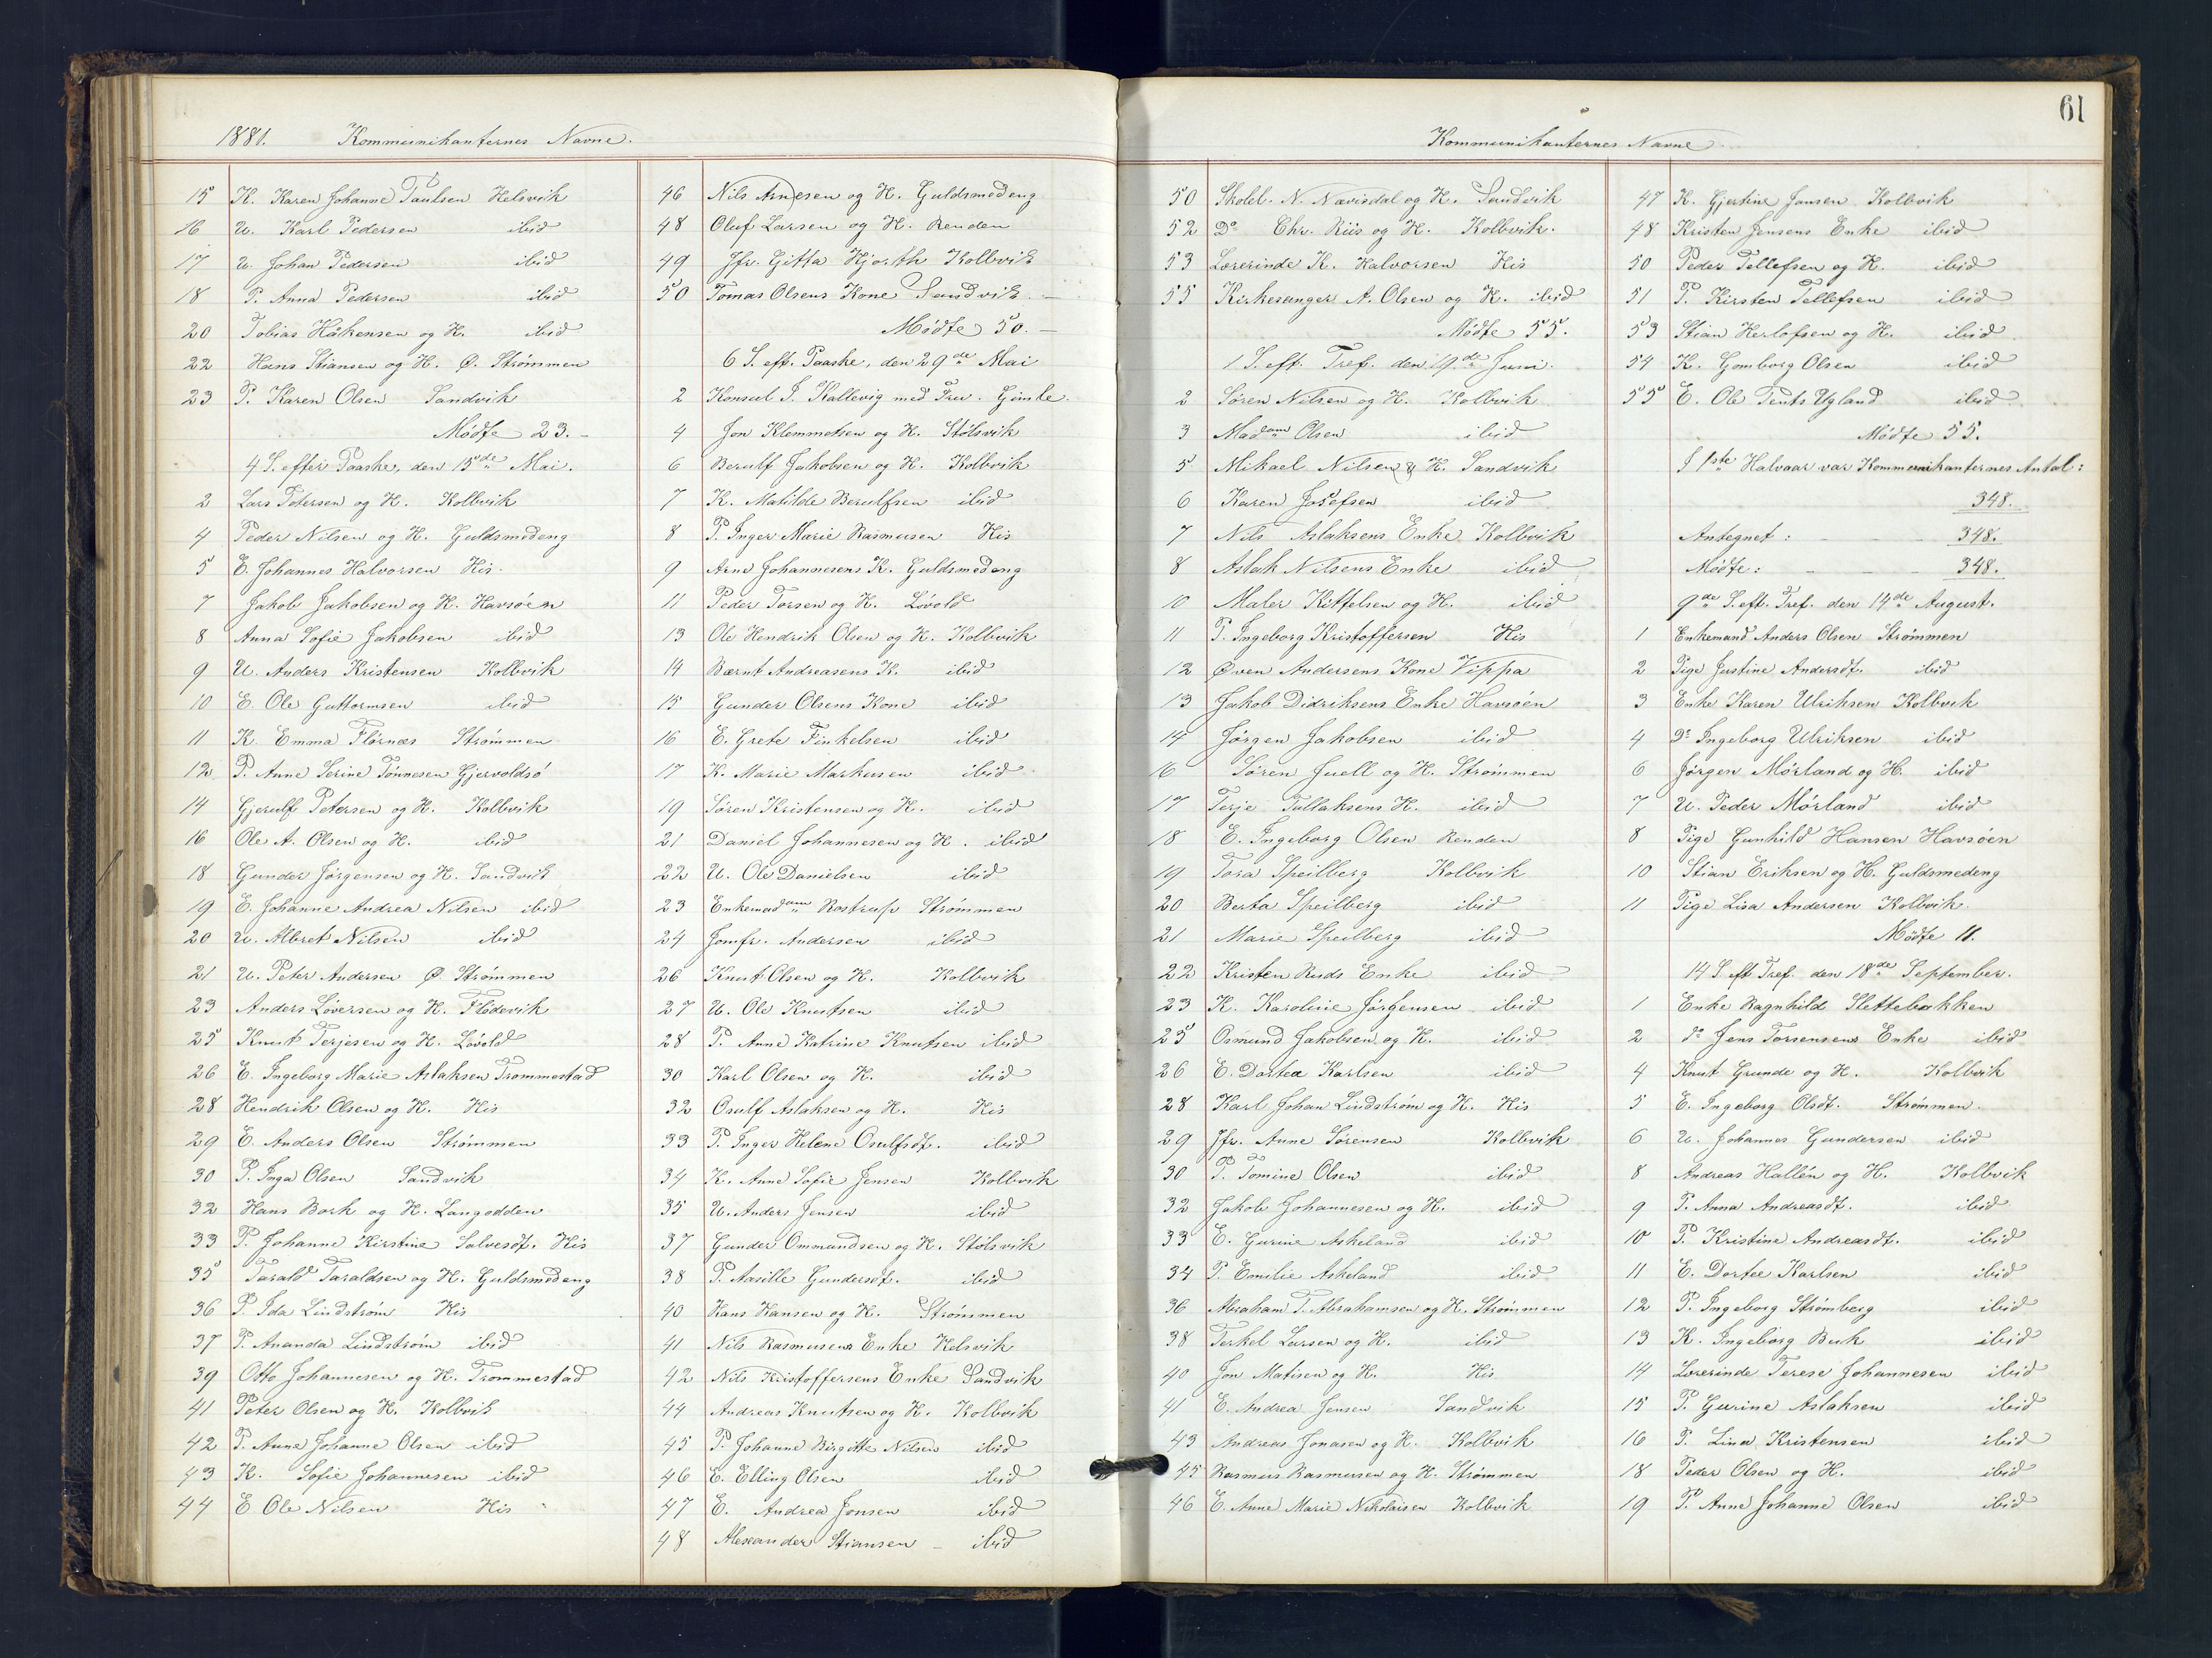 1881. Kommunikanternes Navne.
15 K. Karen Johanne Paulsen Helsvik
16 U. Karl Pedersen ibid
17 U. Johan Pedersen ibid
18 P. Anna Pedersen ibid
20 Tobias Håkensen og H. ibid
22 Hans Stiansen og H. Ø. Strømmen
23 P. Karen Olsen Sandvik
Mødte 23.-
4 S. efter Paaske, den 15de Mai.
2 Lars Petersen og H. Kolbvik
4 Peder Nilsen og H. Guldsmedeng
5 E. Johannes Halvorsen His.
7 Jakob Jakobsen og H. Havsøen
8 Anna Sofie Jakobsen ibid
9 U. Anders Kristensen Kolbvik
10 E. Ole Guttormsen ibid
11 K. Emma Flørnæs Strømmen
12 P. Anne Serine Tønnesen Gjervoldsø
14 Gjerulf Petersen og H. Kolbvik
16 Ole A. Olsen og H. ibid
18 Gunder Jørgensen og H. Sandvik
19 E. Johanne Andrea Nilsen ibid
20 U. Albret Nilsen ibid
21 U. Peter Andersen Ø. Strømmen
23 Anders Løversen og H. Flødevik
25 Knut Terjesen og H. Løvold
26 E. Ingeborg Marie Aslaksen Trommestad
28 Hendrik Olsen og H. His
29 E. Anders Olsen Strømmen
30 P. Inga Olsen Sandvik
32 Hans Bork og H. Langodden
33 P. Johanne Kirstine Salvesdt. His
35 Tarald Taraldsen og H. Guldsmedeng
36 P. Ida Lindstrøm His
37 P. Ananda Lindstrøm ibid
39 Otto Johannesen og H. Trommestad
41 Peter Olsen og H. Kolbvik
42 P. Anne Johanne Olsen ibid
43 K. Sofie Johannesen ibid
44 E. Ole Nilsen His
46 Nils Arnesen og H. Guldsmedeng
48 Oluf Larsen og H. Renden
49 Jfr. Gitta Hjorth Kolbvik
50 Tomas Olsens Kone Sandvik.-
Mødte 50.-
6 S. eft. Paaske, den 29de Mai
2 Konsul S. Kallevig med Fru. Gimle.
4 Jon Klemmetsen og H. Stølsvik
6 Berulf Jakobsen og H. Kolbvik
7 K. Matilde Berulfsen ibid
8 P. Inger Marie Rasmusen His
9 Arne Johannesens K. Guldsmedeng
11 Peder Torsen og H. Løvold
13 Ole Hendrik Olsen og H. Kolbvik
14 Bærnt Andreasens K. ibid
15 Gunder Olsens Kone ibid
16 E. Grete Finkelsen ibid
17 K. Marie Markusen ibid
19 Søren Kristensen og H. ibid
21 Daniel Johannesen og H. ibid
22 U. Ole Danielsen ibid
23 Enkemadam Rostrup Strømmen
24 Jomfr. Andersen ibid
26 Knut Olsen og H. Kolbvik
27 U. Ole Knutsen ibid
28 P. Anne Katrine Knutsen ibid
30 Karl Olsen og H. ibid
32 Osulf Aslaksen og H. His
33 P. Inger Helene Osulfsdt. ibid
34 K. Anne Sofie Jensen Kolbvik
35 U. Anders Jensen ibid
37 Gunder Ommundsen og H. Stølsvik
38 P. Aasille Gundersdt. ibid
40 Hans Hansen og H. Strømmen
41 Nils Rasmusens Enke Helsvik
42 Nils Kristoffersens Enke Sandvik
44 Andreas Knutsen og H. Kolbvik
45 P. Johanne Birgitte Nilsen ibid
46 E. Elling Olsen ibid
47 E. Andrea Jonsen ibid
48 Alexander Stiansen - ibid
61
Kommunikanternes Navne
50 Skolel. N. Navisdal og H. Sandvik
52 Do Chr. Riis og H. Kolbvik.
53 Lærerinde K. Halvorsen His
55 Kirkesanger A. Olsen og H. ibid
Mødte 55.
1 S. eft. Tref. den 19de Juni.
2 Søren Nilsen og H. Kolbvik
3 Madam Olsen ibid
5 Mikael Nilsen & H. Sandvik
6 Karen Josefsen ibid
7 Nils Aslaksens Enke Kolbvik
8 Aslak Nilsens Enke ibid
10 Maler Kittelsen og H. ibid
11 P. Ingeborg Kristoffersen His
12 Øven Andersens Kone Vippa
13 Jakob Didriksens Enke Havsøen
14 Jørgen Jakobsen ibid
16 Søren Juell og H. Strømmen
17 Terje Tellaksens H. ibid
18 E. Ingeborg Olsen Renden
19 Tora Speilberg Kolbvik
20 Berta Speilberg ibid
21 Marie Speilberg ibid
22 Kristen Ruds Enke ibid
23 K. Karoline Jørgensen ibid
25 Osmund Jakobsen og H. ibid
26 E. Dortea Karlsen ibid
28 Karl Johan Lindstrøm og H. His
29 Jfr. Anne Sørensen Kolbvik
30 P. Tomine Olsen ibid
32 Jakob Johannesen og H. ibid
33 E. Gurine Askeland ibid
34 P. Emilie Askeland ibid
36 Abraham T. Abrahamsen og H. Strømmen
38 Terkel Larsen og H. ibid
40 Jon Matisen og H. His
41 E. Andrea Jensen Sandvik
43 Andreas Jonasen og H. Kolbvik
45 Rasmus Rasmusen og H. Strømmen
46 E. Anne Marie Nikolaisen Kolbvik
47 K. Gjertine Jansen Kolbvik
48 Kristen Jensens Enke ibid
50 Peder Tellefsen og H. ibid
51 P. Kirsten Tellefsen ibid
53 Stian Herlofsen og H. ibid
54 K. Gomborg Olsen ibid
55 E. Ole Tents Ugland ibid
Mødte 55.
I 1ste Halvaar var Kommunikanternes Antal:
348.
Antegnet: - - - 348.
Mødte: - - - 348.
9de S. eft. Tref. den 14de August.
1 Enkemand Anders Olsen Strømmen
2 Pige Justine Andersdt. ibid
3 Enke Karen Ulriksen Kolbvik
4 Do Ingeborg Ulriksen ibid
6 Jørgen Mørland og H. ibid
7 U. Peder Mørland ibid
8 Pige Gunhild Hansen Havsøen
10 Stian Eriksen og H. Guldsmedeng
11 Pige Lisa Andersen Kolbvik.
Mødte 11.
14 S. eft Tref. den 18de September.
1 Enke Ragnhild Slettebakken
2 do Jens Torsensens Enke ibid
4 Knut Grunde og H. Kolbvik
5 E. Ingeborg Olsdt. Strømmen.
6 U. Johannes Gundersen ibid
8 Andreas Hallén og H. Kolbvik
9 P. Anna Andreasdt. ibid
10 P. Kristine Andreasdt. ibid
11 E. Dortee Karlsen ibid
12 P. Ingeborg Strømberg ibid
13 K. Ingeborg Buk ibid
14 Lærerinde Terese Johannesen ibid
15 P. Gurine Aslaksen ibid
16 P. Lina Kristensen ibid
18 Peder Olsen og H. ibid
19 P. Anne Johanne Olsen ibid